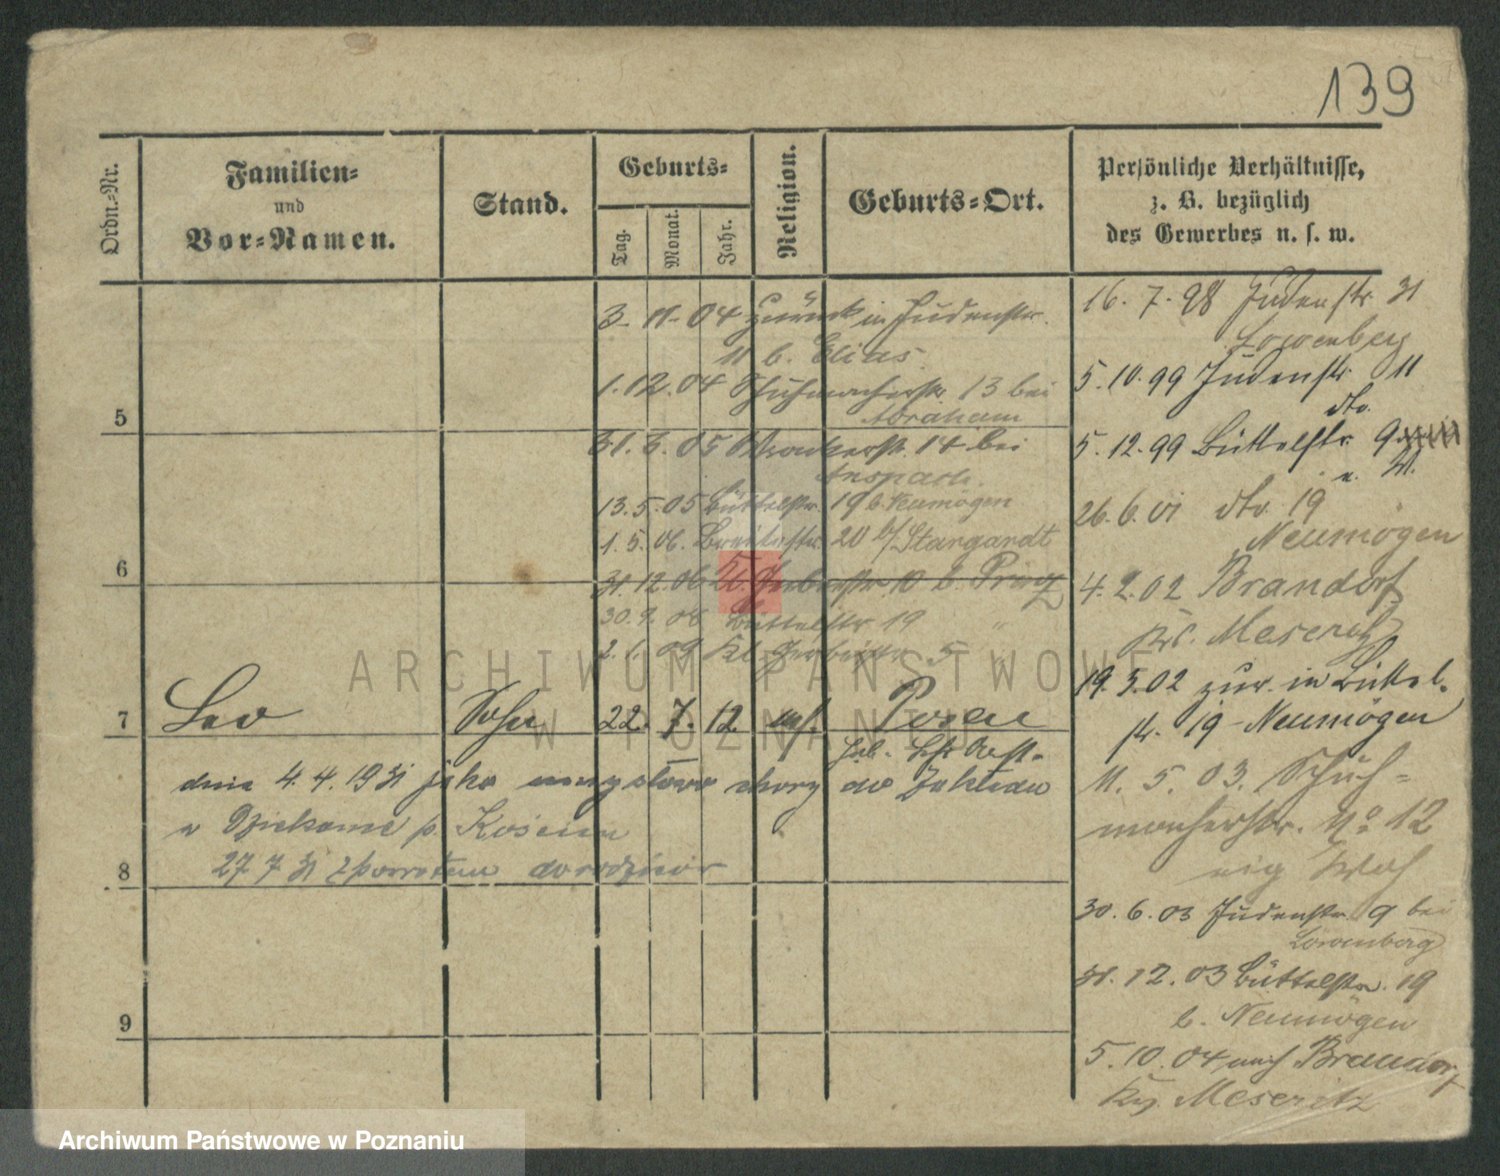 139
Ordn.-Nr.
Familien-
und
Vor-Namen.
Stand.
Geburts-
Tag.
Monat.
Jahr.
Religion.
Geburts-Ort.
Persönliche Verhältnisse,
z. B. bezüglich
des Gewerbes u. s. w.
3. 11. 04 zurück in Judenstr.
11 b. Elias
1. 12. 04 Schuhmacherstr. 13 bei
Abraham
5
31. 3. 05 14 bei
13. 5. 05 Büttelstr. 19 b. Neumögen
1. 5. 06. Breitestr. 20 b/ Stargardt
6
31. 12. 06 Kl. Gerberstr. 10 b. Prinz
30. 9. 08 Büttelstr. 19 "
2. 1. 09 Kl. Gerberstr. 5 "
7 Leo Sohn 22. 7. 12. Posen
dnia 4. 4. 1931 jako umysłowo chory do Zakładu
w Dziekance p.
8 27 7 31 z powrotem do rodziców
9
16. 7. 98 Judenstr. 31
Lowenberg
5. 10. 99 Judenstr. 11
dto.
5. 12. 99 Büttelstr. 9
26. 6. 01 dto. 19
Neumögen
4. 2. 02 Brandorf
Krs. Meseritz
19. 3. 02 zur. in Büttel-
str. 19 Neumögen
11. 5. 03. Schuh-
macherstr. No 12
30. 6. 03 Judenstr. 9 bei
Lowenberg
31. 12. 03 Büttelstr. 19
b. Neumögen
5. 10. 04 nach Brandorf
Meseritz
ARCHIWUM PAŃSTWOWE
W POZNANIU
Archiwum Państwowe w Poznaniu